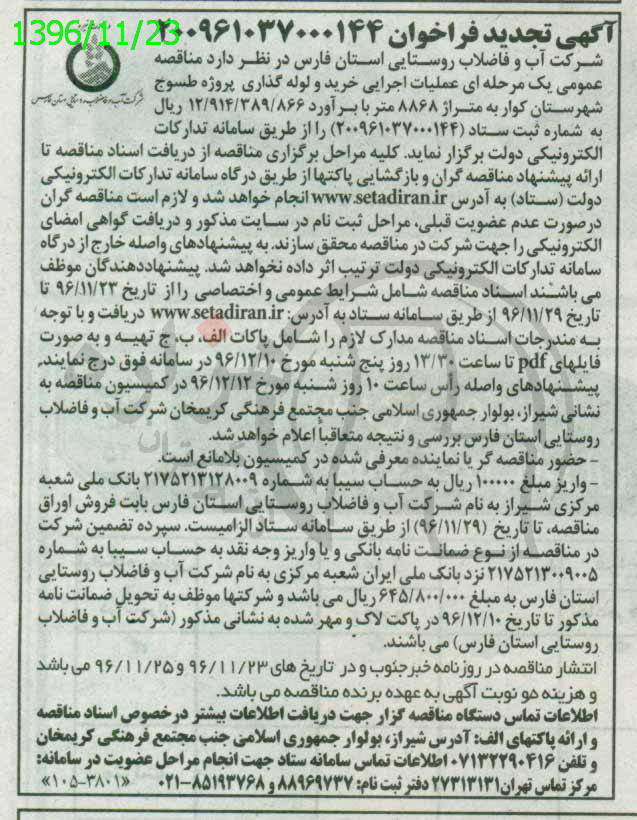 1396/11/23
آگهی تجدید فراخوان ۲۰۰۹۶۱۰۳۷۰۰۰۱۴۴
شرکت آب و فاضلاب روستایی استان فارس در نظر دارد مناقصه
عمومی یک مرحله ای عملیات اجرایی خرید و لوله گذاری پروژه طسوج
شهرستان کوار به متراژ ۸۸۶۸ متر با برآورد ۱۲/۹۱۴/۳۸۹/۸۶۶ ریال
به شماره ثبت ستاد (۲۰۰۹۶۱۰۳۷۰۰۰۱۴۴) را از طریق سامانه تدارکات
شرکت آب و فاضلاب روستایی استان فارس
الکترونیکی دولت برگزار نماید. کلیه مراحل برگزاری مناقصه از دریافت اسناد مناقصه تا
ارائه پیشنهاد مناقصه گران و بازگشایی پاکتها از طریق درگاه سامانه تدارکات الکترونیکی
دولت (ستاد) به آدرس www.setadiran.ir انجام خواهد شد و لازم است مناقصه گران
درصورت عدم عضویت قبلی، مراحل ثبت نام در سایت مذکور و دریافت گواهی امضای
الکترونیکی را جهت شرکت در مناقصه محقق سازند. به پیشنهادهای واصله خارج از درگاه
سامانه تدارکات الکترونیکی دولت ترتیب اثر داده نخواهد شد. پیشنهاددهندگان موظف
می باشند اسناد مناقصه شامل شرایط عمومی و اختصاصی را از تاریخ ۹۶/۱۱/۲۳ تا
تاریخ ۹۶/۱۱/۲۹ از طریق سامانه ستاد به آدرس: www.setadiran.ir دریافت و با توجه
به مندرجات اسناد مناقصه مدارک لازم را شامل پاکات الف، ب، ج تهیه و به صورت
فایلهای pdf تا ساعت ۱۳/۳۰ روز پنج شنبه مورخ ۹۶/۱۲/۱۰ در سامانه فوق درج نمایند.
پیشنهادهای واصله رأس ساعت ۱۰ روز شنبه مورخ ۹۶/۱۲/۱۲ در کمیسیون مناقصه به
نشانی شیراز، بولوار جمهوری اسلامی جنب مجتمع فرهنگی کریمخان شرکت آب و فاضلاب
روستایی استان فارس بررسی و نتیجه متعاقباً اعلام خواهد شد.
- حضور مناقصه گر یا نماینده معرفی شده در کمیسیون بلامانع است.
- واریز مبلغ ۱۰۰۰۰۰ ریال به حساب سیبا به شماره ۲۱۷۵۲۱۳۱۲۸۰۰۹ بانک ملی شعبه
مرکزی شیراز به نام شرکت آب و فاضلاب روستایی استان فارس بابت فروش اوراق
مناقصه، تا تاریخ (۹۶/۱۱/۲۹) از طریق سامانه ستاد الزامیست. سپرده تضمین شرکت
در مناقصه از نوع ضمانت نامه بانکی و یا واریز وجه نقد به حساب سیبا به شماره
۲۱۷۵۲۱۳۰۰۹۰۰۵ نزد بانک ملی ایران شعبه مرکزی به نام شرکت آب و فاضلاب روستایی
استان فارس به مبلغ ۶۴۵/۸۰۰/۰۰۰ ریال می باشد و شرکتها موظف به تحویل ضمانت نامه
مذکور تا تاریخ ۹۶/۱۲/۱۰ در پاکت لاک و مهر شده به نشانی مذکور (شرکت آب و فاضلاب
روستایی استان فارس) می باشند.
انتشار مناقصه در روزنامه خبر جنوب و در تاریخ های ۹۶/۱۱/۲۳ و ۹۶/۱۱/۲۵ می باشد
و هزینه دو نوبت آگهی به عهده برنده مناقصه می باشد.
اطلاعات تماس دستگاه مناقصه گزار جهت دریافت اطلاعات بیشتر در خصوص اسناد مناقصه
و ارائه پاکتهای الف: آدرس شیراز، بولوار جمهوری اسلامی جنب مجتمع فرهنگی کریمخان
و تلفن ۰۷۱۳۲۲۹۰۴۱۶ اطلاعات تماس سامانه ستاد جهت انجام مراحل عضویت در سامانه:
مرکز تماس تهران ۲۷۳۱۳۱۳۱ دفتر ثبت نام: ۸۸۹۶۹۷۳۷ و ۸۵۱۹۳۷۶۸-۰۲۱ «۱۰۵-۳۸۰۱»